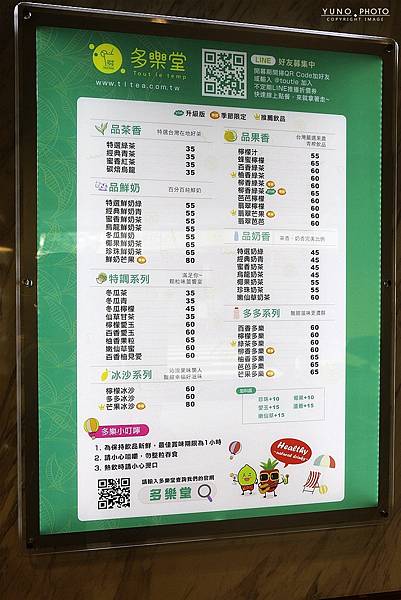 YUNO PHOTO
COPYRIGHT IMAGE
多樂堂
Tout le temp
www.tltea.com.tw
LINE 好友募集中
開啟期間掃QR Code加好友
或輸入 @toutle 加入
不定期LINE推播折價券
快速線上點餐，來就拿著走~
升級版 季節限定 推薦飲品
品茶香 特選台灣在地好茶
特選綠茶 35
經典青茶 35
蜜香紅茶 35
碳焙烏龍 35
品鮮奶 百分百純鮮奶
特選鮮奶綠 55
經典鮮奶青 55
蜜香鮮奶茶 55
烏龍鮮奶茶 55
冬瓜鮮奶 55
椰果鮮奶茶 65
珍珠鮮奶茶 65
鮮奶芒果 80
特調系列 滿足你~
顆粒味蕾饗宴
冬瓜茶 35
冬瓜青 35
冬瓜檸檬 45
仙草甘茶 35
檸檬愛玉 60
百香愛玉 60
柚香果粒 65
嫩仙草蜜 60
百香柚見愛 60
冰沙系列
檸檬冰沙 60
多多冰沙 60
芒果冰沙 80
品果香 台灣嚴選果農
檸檬汁 55
蜂蜜檸檬 55
百香綠茶 60
柚香綠茶 60
柳香綠茶 65
芭芭檸檬 60
翡翠檸檬 60
翡翠芒果 65
芭香綠茶 60
品奶香 茶香、奶香完美比例
特選奶綠 45
經典奶青 45
蜜香奶茶 45
烏龍奶茶 45
椰果奶茶 55
珍珠奶茶 55
嫩仙草奶茶 55
多多系列
百香多樂 60
檸檬多樂 60
綠茶多樂 60
柳香多樂 65
柚香多樂 60
芭芭多樂 60
芒果多樂 65
加料區
珍珠+10 椰果+10
愛玉+15 蘆薈+15
嫩仙草+15
多樂小叮嚀
1. 為保持飲品新鮮，最佳賞味期限為1小時
2. 請小心咀嚼，勿整粒吞食
3. 熱飲時請小心燙口
請輸入多樂堂查詢我們的官網
多樂堂
Healthy
~natural drinks~